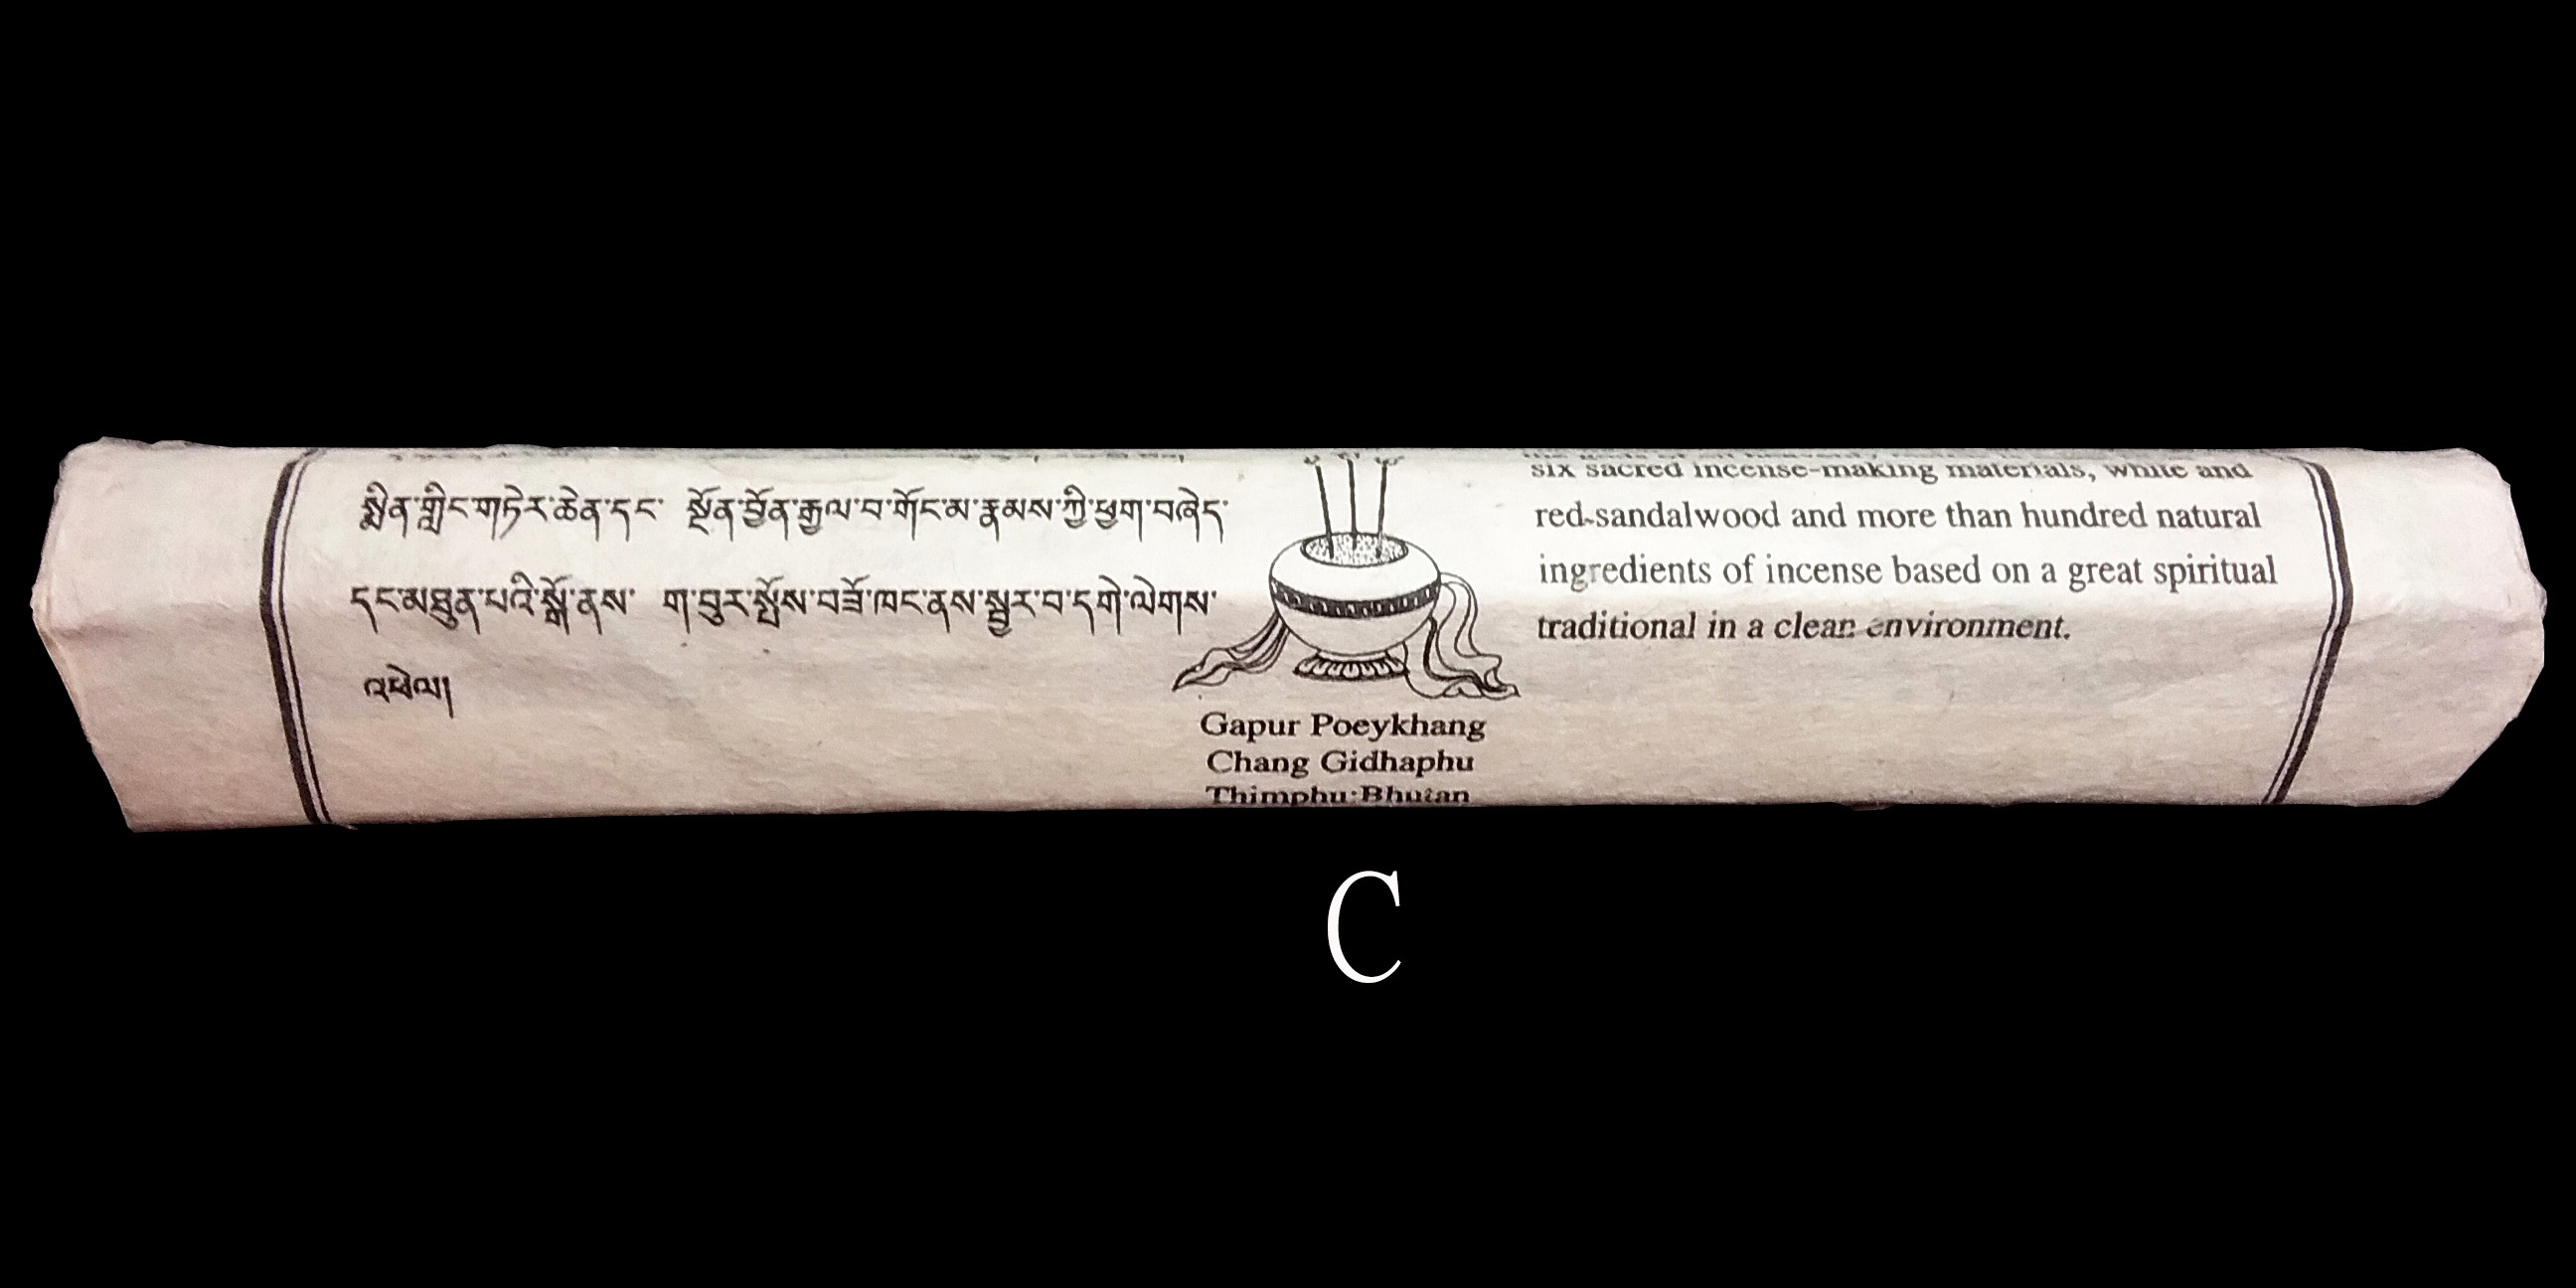 སྨིན་གླིང་གཏེར་ཆེན་དང་ སྔོན་བྱོན་རྒྱལ་བ་གོང་མ་རྣམས་ཀྱི་ཕྱག་བཞེད་
དང་མཐུན་པའི་སྒོ་ནས་ ག་བུར་སྤོས་བཟོ་ཁང་ནས་སྦྱར་བ་དགེ་ལེགས་
འཕེལ།
six sacred incense-making materials, white and
red-sandalwood and more than hundred natural
ingredients of incense based on a great spiritual
traditional in a clean environment.
Gapur Poeykhang
Chang Gidhaphu
Thimphu:Bhutan
C